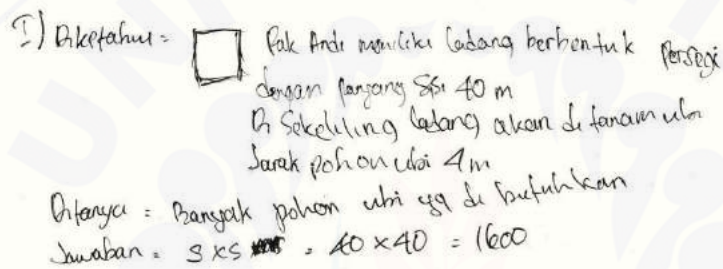 I) Diketahui = Pak Andi memiliki ladang berbentuk Persegi
dengan panjang sisi 40 m
Di Sekeliling ladang akan di tanam ubi
Jarak pohon ubi 4 m
Ditanya = Banyak pohon ubi yg di butuhkan
Jawaban = S x S = 40 x 40 = 1600